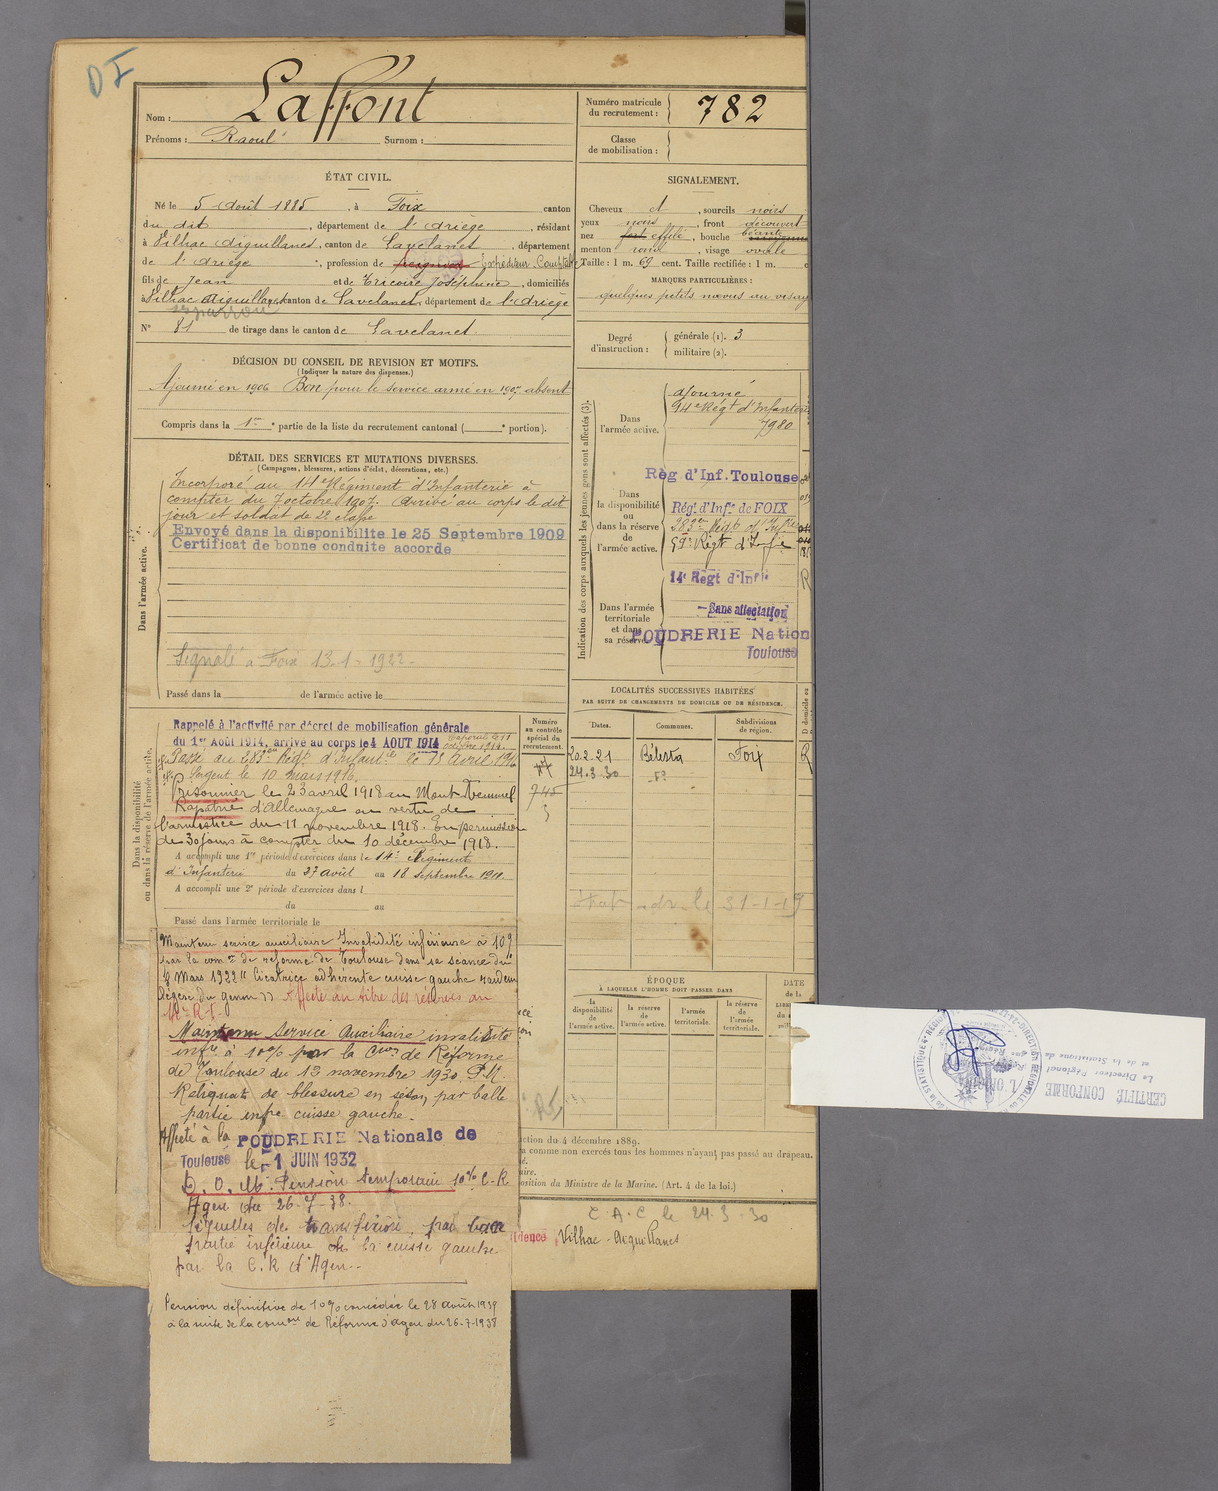 DI
Nom : Laffont
Prénoms : Raoul Surnom :
Numéro matricule du recrutement : 782
Classe de mobilisation :
ÉTAT CIVIL.
Né le 5 Août 1885, à Foix canton
du dit, département de l'Ariège, résidant
à Vilhac Aiguillanes, canton de Lavelanet, département
de l'Ariège, profession de peigneur Expéditeur Comptable
fils de Jean et de Tricoire Joséphine, domiciliés
à Vilhac Aiguillanes, canton de Lavelanet, département de l'Ariège
N° 81 de tirage dans le canton de Lavelanet.
SIGNALEMENT.
Cheveux et, sourcils noirs
yeux noirs, front découvert
nez fort effilé, bouche béante moyenne
menton rond, visage ovale
Taille : 1 m. 69 cent. Taille rectifiée : 1 m. c
MARQUES PARTICULIÈRES :
quelques petits nœvus au visag
Degré d'instruction :
générale (1). 3
militaire (2).
DÉCISION DU CONSEIL DE REVISION ET MOTIFS.
(Indiquer la nature des dispenses.)
Ajourné en 1906 Bon pour le service armé en 1907 absent
Compris dans la 1re partie de la liste du recrutement cantonal ( portion).
DÉTAIL DES SERVICES ET MUTATIONS DIVERSES.
(Campagnes, blessures, actions d'éclat, décorations, etc.)
Dans l'armée active.
Incorporé au 14e Régiment d'Infanterie à
compter du 7 octobre 1907. Arrivé au corps le dit
jour et soldat de 2e classe
Envoyé dans la disponibilite le 25 Septembre 1909
Certificat de bonne conduite accorde
Signalé à Foix 13-1-1922-
Passé dans la de l'armée active le
Indication des corps auxquels les jeunes gens sont affectés (3).
Dans l'armée active.
ajourné
14e Régt d'Infanterie
7980
Dans la disponibilité ou dans la réserve de l'armée active.
Règ d'Inf. Toulouse
Régt d'Infie de FOIX
283e Régt d'Infie
59e Régt d'Infie
Dans l'armée territoriale et dans sa réserve
14e Regt d'Infie
Sans affectation
POUDRERIE Nation
Toulouse
Dans la disponibilité ou dans la réserve de l'armée active.
Rappelé à l'activité par décret de mobilisation générale
du 1er Août 1914, arrivé au corps le 4 AOUT 1914
Caporal le 11 octobre 1914.
Passé au 283e Régt d'Infantie le 18 avril 1916
Sergent le 10 mars 1916.
Prisonnier le 23 avril 1918 au Mont Kemmel
Rapatrié d'Allemagne en vertu de
l'armistice du 11 novembre 1918. En permission
de 30 jours à compter du 10 décembre 1918.
A accompli une 1re période d'exercices dans le 14e Régiment
d'Infanterie du 27 août au 18 septembre 1911.
A accompli une 2e période d'exercices dans l
du au
Passé dans l'armée territoriale le
Numéro au contrôle spécial du recrutement.
745
LOCALITÉS SUCCESSIVES HABITÉES
PAR SUITE DE CHANGEMENTS DE DOMICILE OU DE RÉSIDENCE.
Dates. Communes. Subdivisions de région.
20.2.21 Bélesta Foix R
24.3.30 do
ÉPOQUE
À LAQUELLE L'HOMME DOIT PASSER DANS
la disponibilité de l'armée active. la réserve de l'armée active. l'armée territoriale. la réserve de l'armée territoriale.
DATE de la
Maintenu service auxiliaire Invalidité inférieure à 10%
par la comon de réforme de Toulouse dans sa séance du
8 Mars 1922 "Cicatrice adhérente cuisse gauche raideur
légère du genou" Affecté au titre des réserves au
Maintenu Service Auxiliaire invalidité
infre à 10% par la Cion de Réforme
de Toulouse du 13 novembre 1930. P.M.
Reliquat de blessure en séton par balle
partie infre cuisse gauche.
Affecté à la POUDRERIE Nationale de
Toulouse le 1 JUIN 1932
D. O. M. Pension temporaire 10% C.R
Agen du 26-7-38.
Séquelles de transfixion par balle
partie inférieure de la cuisse gauche
par la C.R d'Agen.
Pension définitive de 10% concédée le 28 août 1939
à la suite de la comon de Réforme d'Agen du 26-7-1938
ction du 4 décembre 1889.
comme non exercés tous les hommes n'ayant pas passé au drapeau.
osition du Ministre de la Marine. (Art. 4 de la loi.)
C.A.C le 24.3.30
idence Vilhac-Aiguillanes
CERTIFIÉ CONFORME
Le Directeur Régional
et de la Statistique de